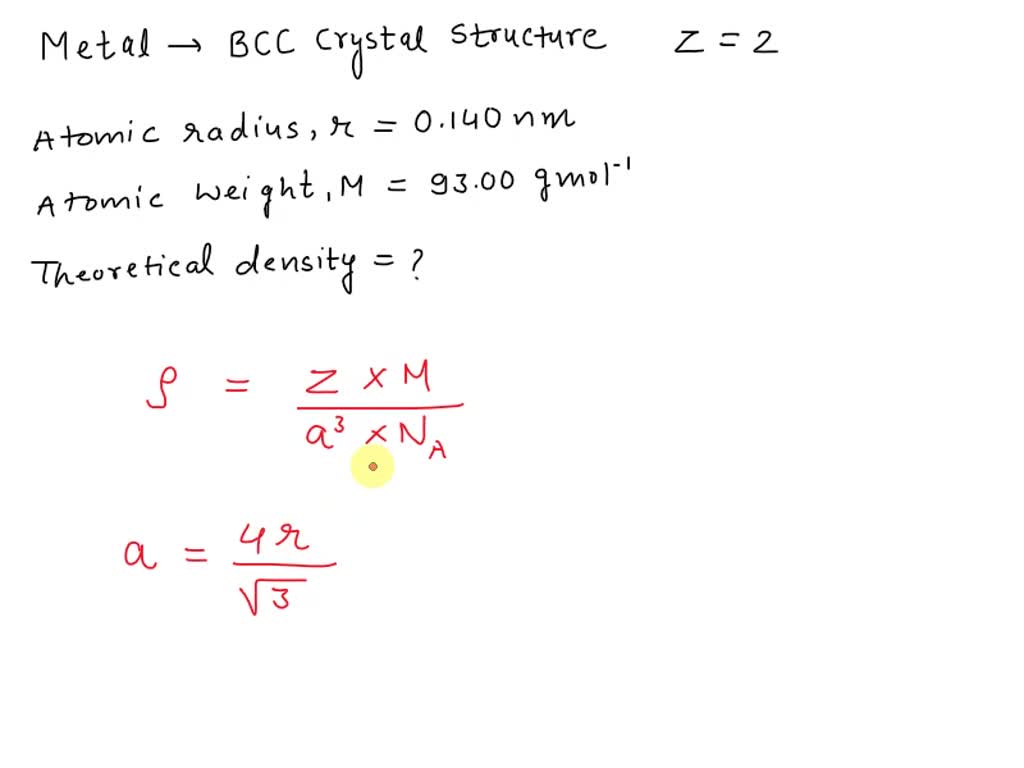 Metal → BCC Crystal Structure Z = 2
Atomic radius, r = 0.140 nm
Atomic weight, M = 93.00 gmol⁻¹
Theoretical density = ?
ρ = Z × M / a³ × N_A
a = 4r / √3